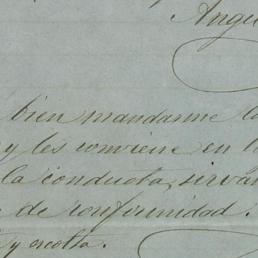 Angu
bien mandarme la
y les conviene en la
la conducta, serván
de conformidad.
y escolta.